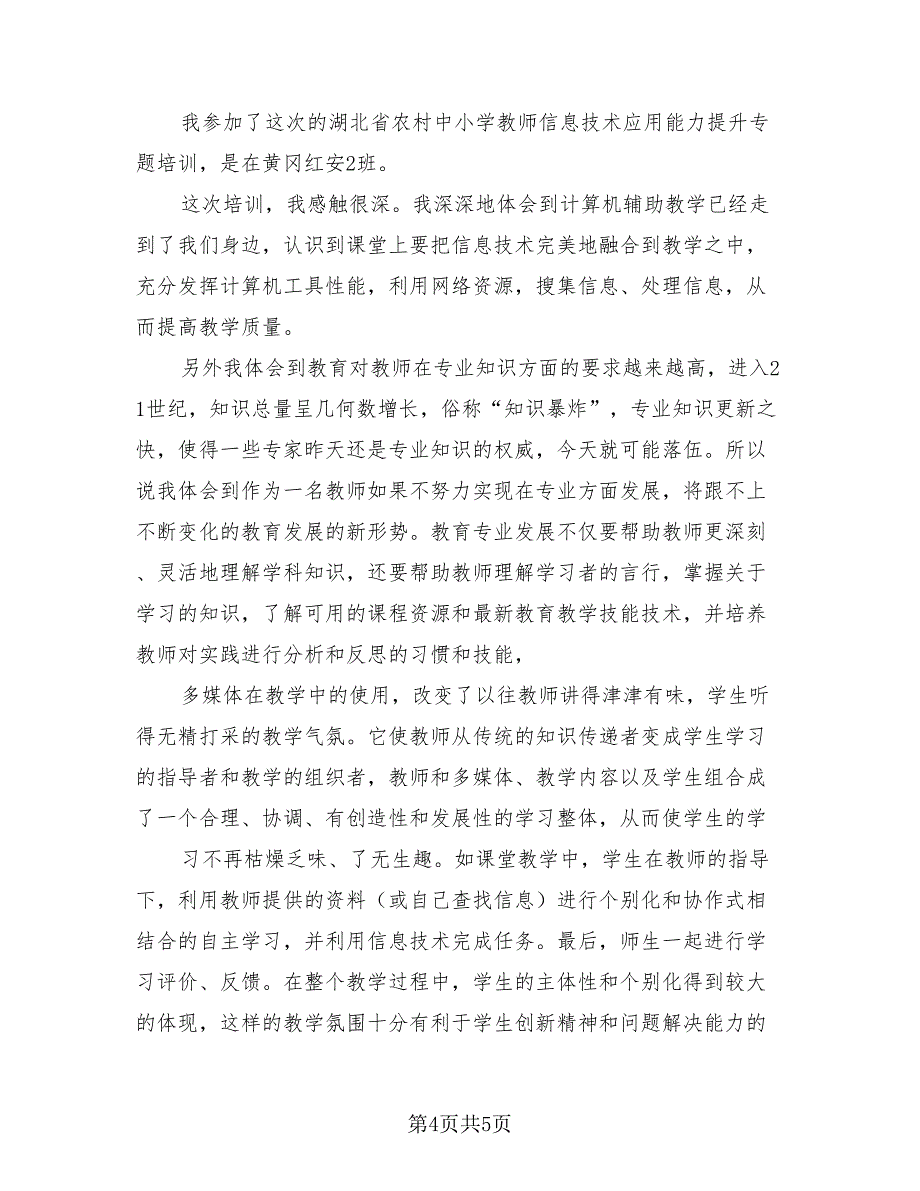 我参加了这次的湖北省农村中小学教师信息技术应用能力提升专
题培训，是在黄冈红安2班。
这次培训，我感触很深。我深深地体会到计算机辅助教学已经走
到了我们身边，认识到课堂上要把信息技术完美地融合到教学之中，
充分发挥计算机工具性能，利用网络资源，搜集信息、处理信息，从
而提高教学质量。
另外我体会到教育对教师在专业知识方面的要求越来越高，进入2
1世纪，知识总量呈几何数增长，俗称“知识暴炸”，专业知识更新之
快，使得一些专家昨天还是专业知识的权威，今天就可能落伍。所以
说我体会到作为一名教师如果不努力实现在专业方面发展，将跟不上
不断变化的教育发展的新形势。教育专业发展不仅要帮助教师更深刻
、灵活地理解学科知识，还要帮助教师理解学习者的言行，掌握关于
学习的知识，了解可用的课程资源和最新教育教学技能技术，并培养
教师对实践进行分析和反思的习惯和技能，
多媒体在教学中的使用，改变了以往教师讲得津津有味，学生听
得无精打采的教学气氛。它使教师从传统的知识传递者变成学生学习
的指导者和教学的组织者，教师和多媒体、教学内容以及学生组合成
了一个合理、协调、有创造性和发展性的学习整体，从而使学生的学
习不再枯燥乏味、了无生趣。如课堂教学中，学生在教师的指导
下，利用教师提供的资料（或自己查找信息）进行个别化和协作式相
结合的自主学习，并利用信息技术完成任务。最后，师生一起进行学
习评价、反馈。在整个教学过程中，学生的主体性和个别化得到较大
的体现，这样的教学氛围十分有利于学生创新精神和问题解决能力的
第4页共5页